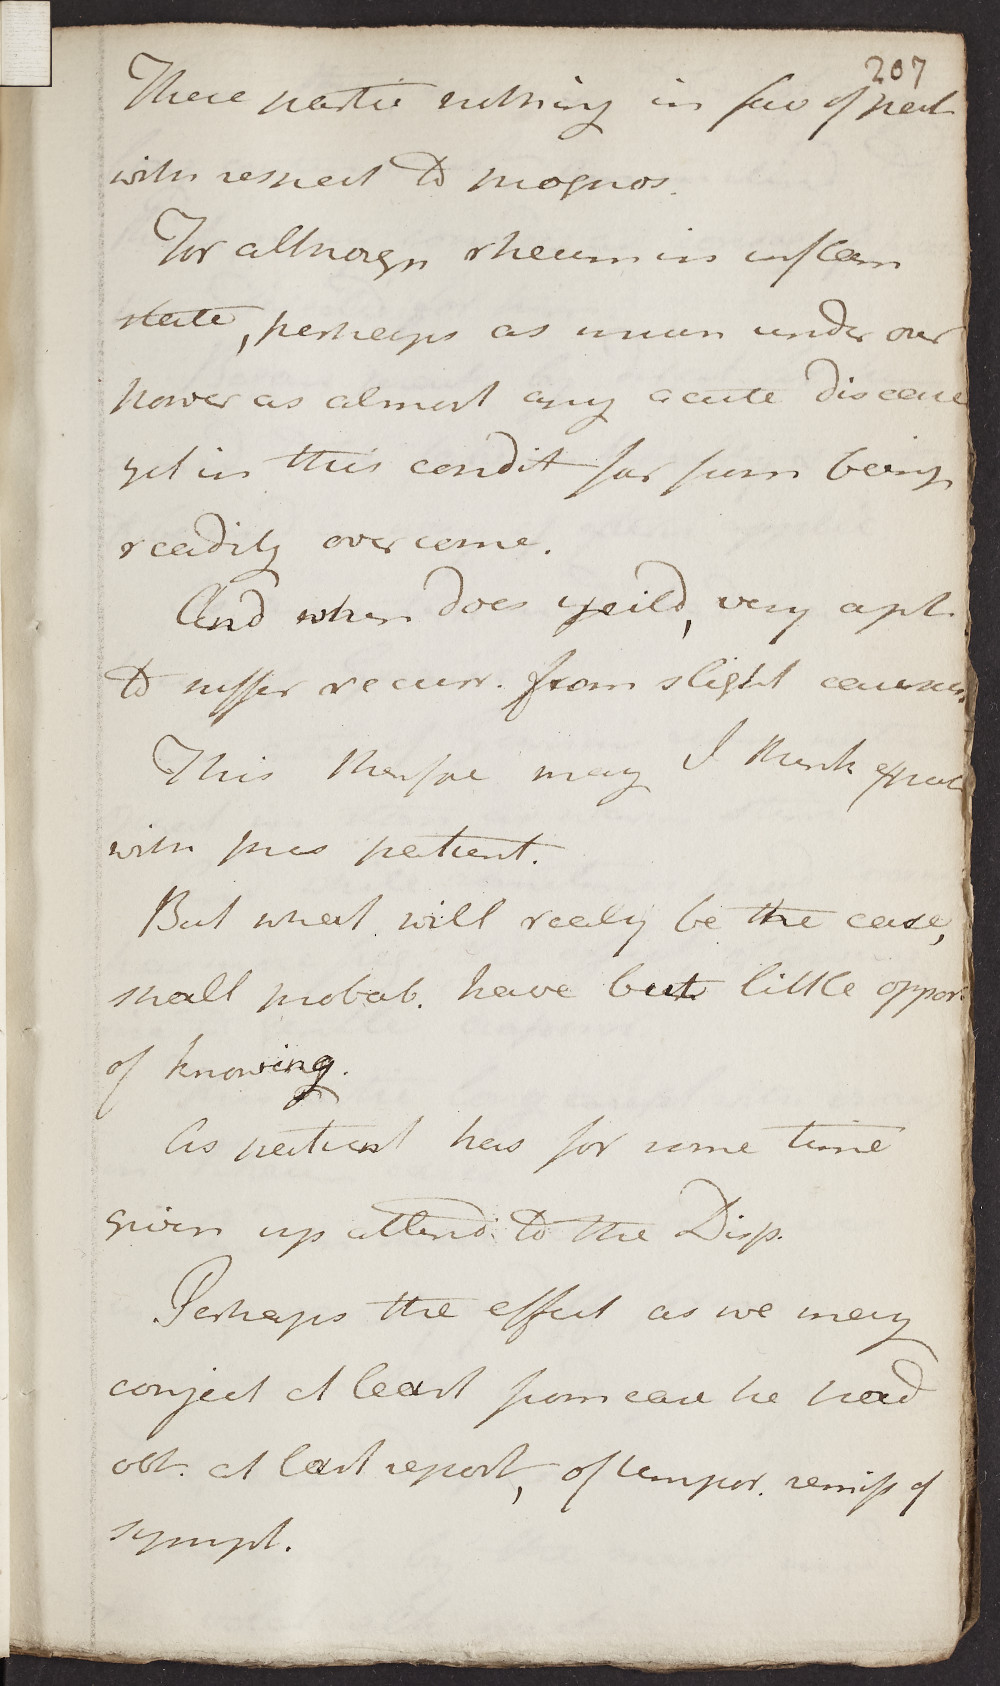 207
There partic nothing in fav of pat
with respect to prognos.
For although rheum in inflam
state, perhaps as much under our
power as almost any acute disease
yet in this condit far from being
readily overcome.
And when does yeild, very apt
to suffer recurr. from slight causes.
This therfore may I think
with pres patient.
But what will realy be the case,
shall probab. have but little oppor.
of knowing.
As patient has for some time
given up attend. to the Disp.
Perhaps the effect as we may
conject at least from ease he had
obt. at last report, of tempor. remiss of
sympt.